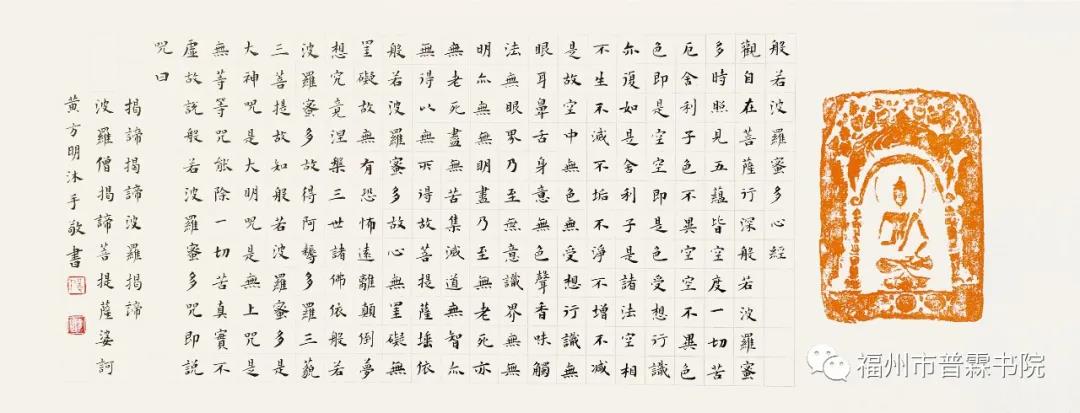 般若波羅蜜多心經
觀自在菩薩行深般若波羅蜜
多時照見五蘊皆空度一切苦
厄舍利子色不異空空不異色
色即是空空即是色受想行識
亦復如是舍利子是諸法空相
不生不滅不垢不淨不增不減
是故空中無色無受想行識無
眼耳鼻舌身意無色聲香味觸
法無眼界乃至無意識界無無
明亦無無明盡乃至無老死亦
無老死盡無苦集滅道無智亦
無得以無所得故菩提薩埵依
般若波羅蜜多故心無罣礙無
罣礙故無有恐怖遠離顛倒夢
想究竟涅槃三世諸佛依般若
波羅蜜多故得阿耨多羅三藐
三菩提故知般若波羅蜜多是
大神咒是大明咒是無上咒是
無等等咒能除一切苦真實不
虛故說般若波羅蜜多咒即說
咒曰
揭諦揭諦波羅揭諦
波羅僧揭諦菩提薩婆訶
黄方明沐手敬書
福州市普霖书院